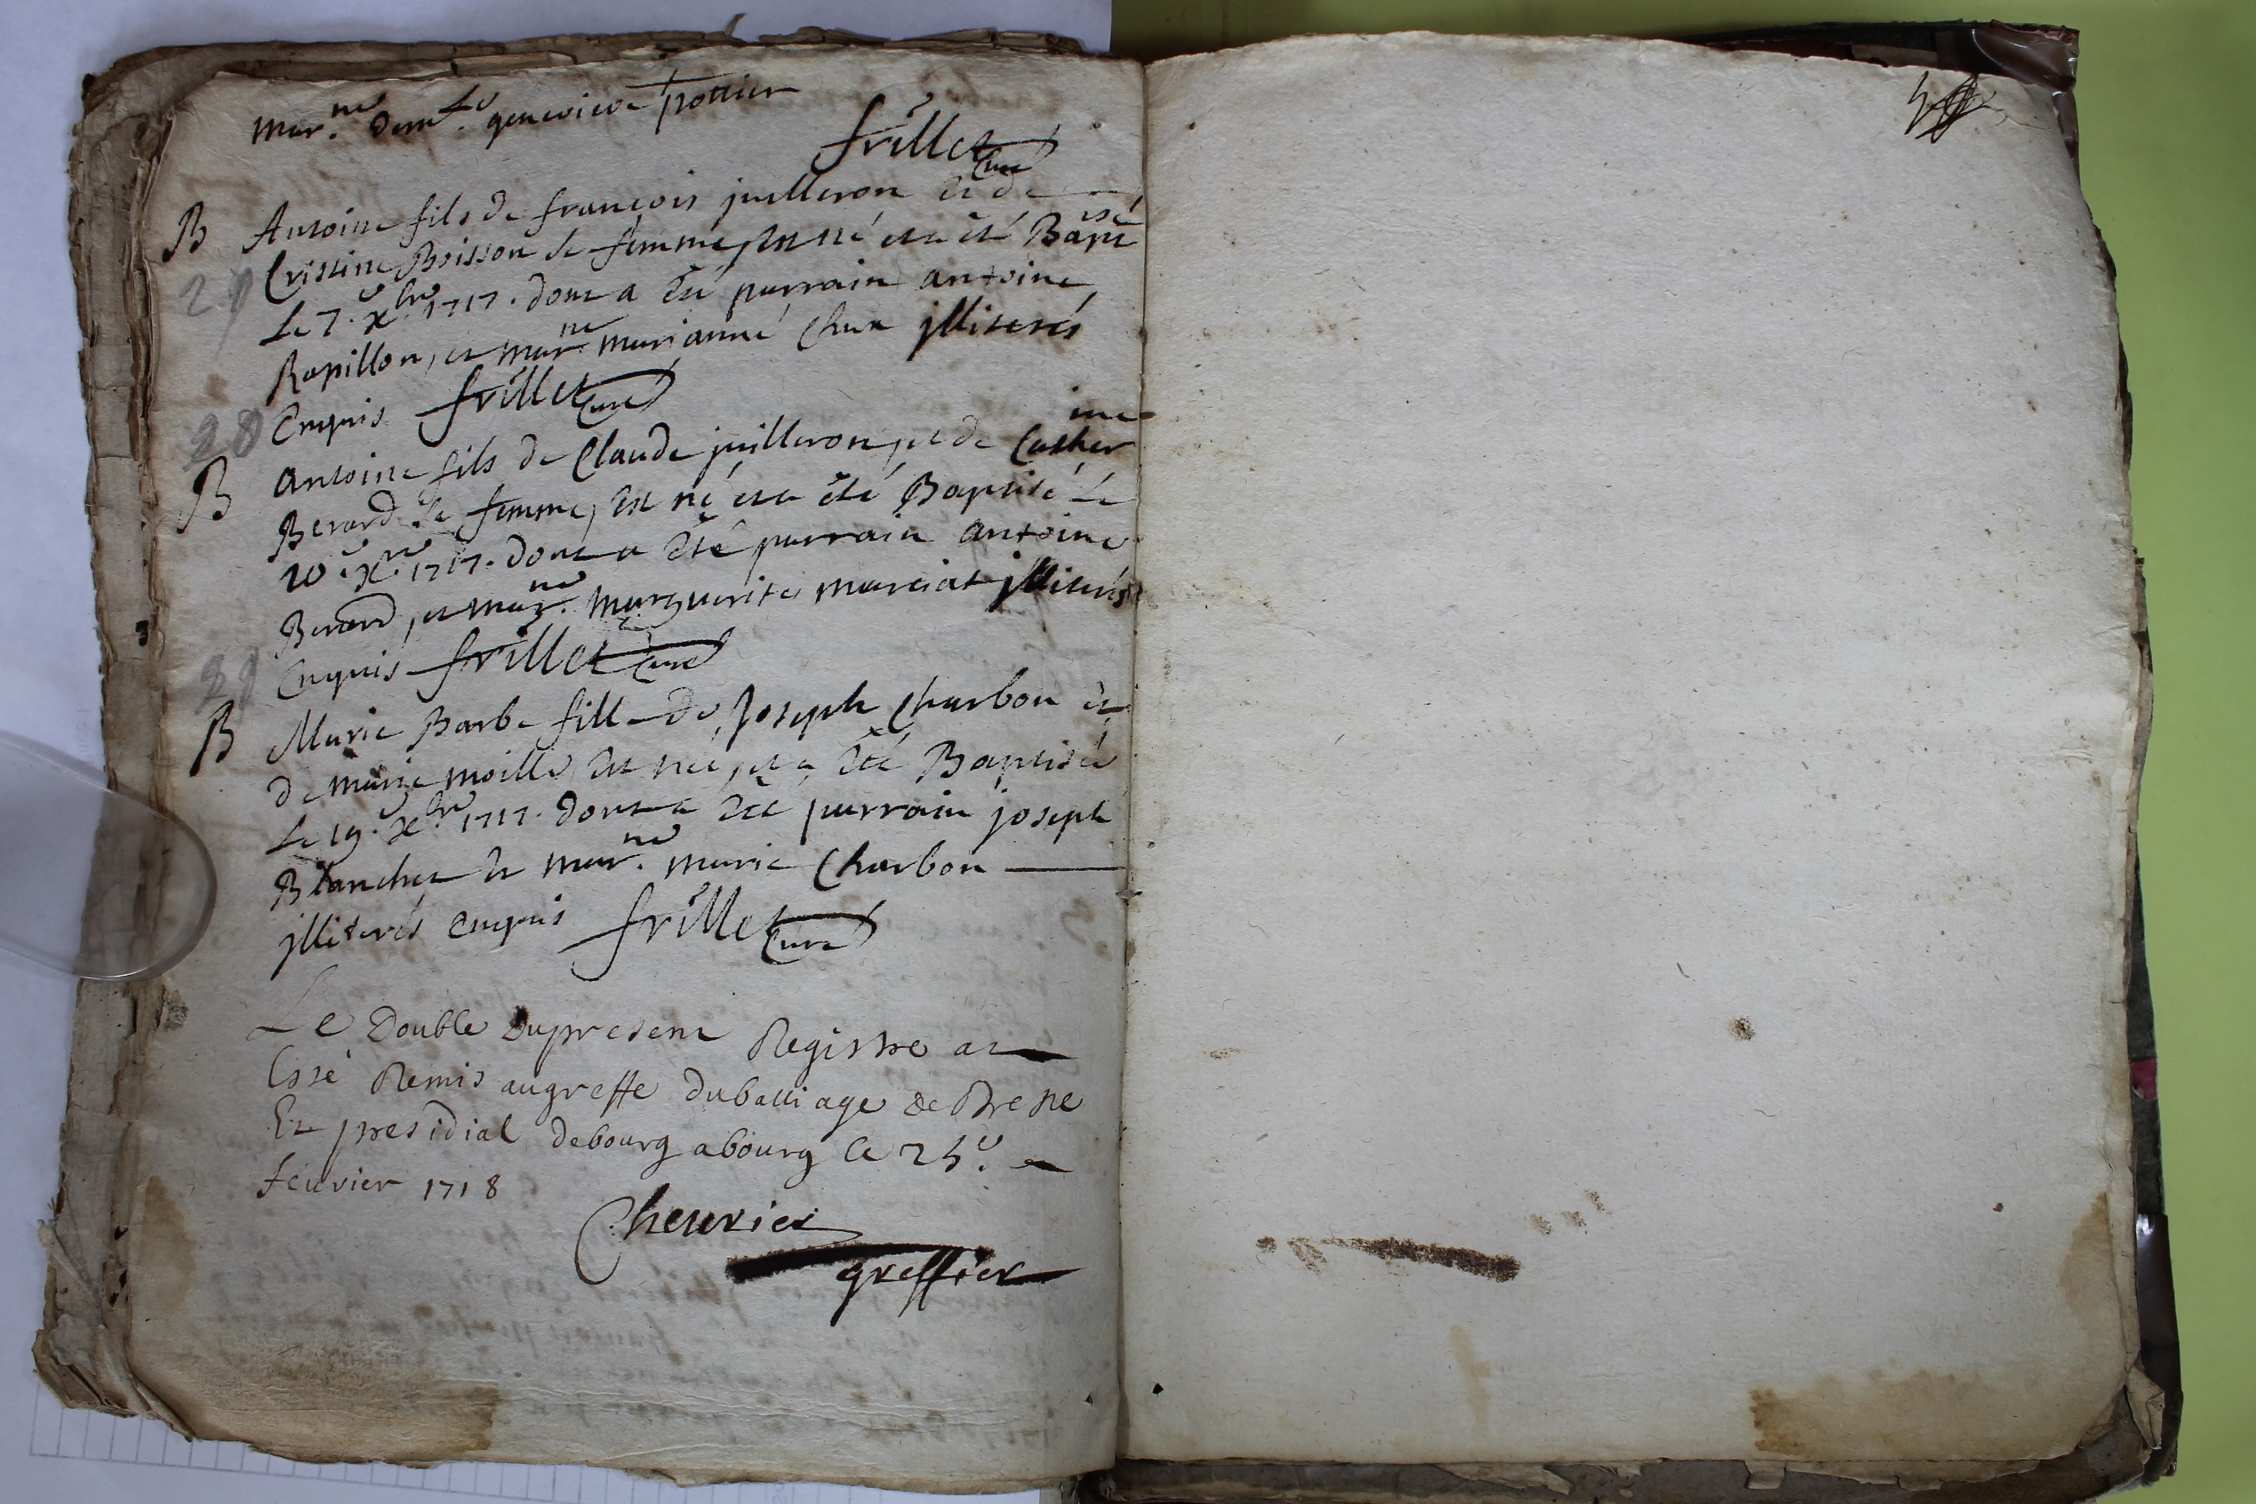 mar.ne dem.le genevieve pottier
frillet Curé
B Antoine fils de françois juilleron et de
Cristine Boisson sa femme, est né et a été Baptisé
27
Le 7.e xbre 1717. dont a été parrain antoine
Ropillon, et mar.ne marianne Chu illiterés
Enquis frillet Curé
28
B antoine fils de Claude juilleron, et de Catherine
Berard sa femme, est né et a été Baptisé Le
10.e xre 1717. dont a été parrain antoine
Berard, et mar.ne marguerite marciat illiterés
Enquis frillet Curé
29
B Marie Barbe fille de Joseph Charbon et
de marie moille est née, et a été Baptisée
Le 19.e xbre 1717. dont a été parrain joseph
Blanchet et mar.ne marie Charbon
illiterés enquis frillet Curé
Le Double Dupresent Registre at
Esté Remis augreffe dubailliage de Bresse
Et presidial debourg abourg Ce 25.e
feuvrier 1718
Cheuvrier
greffier